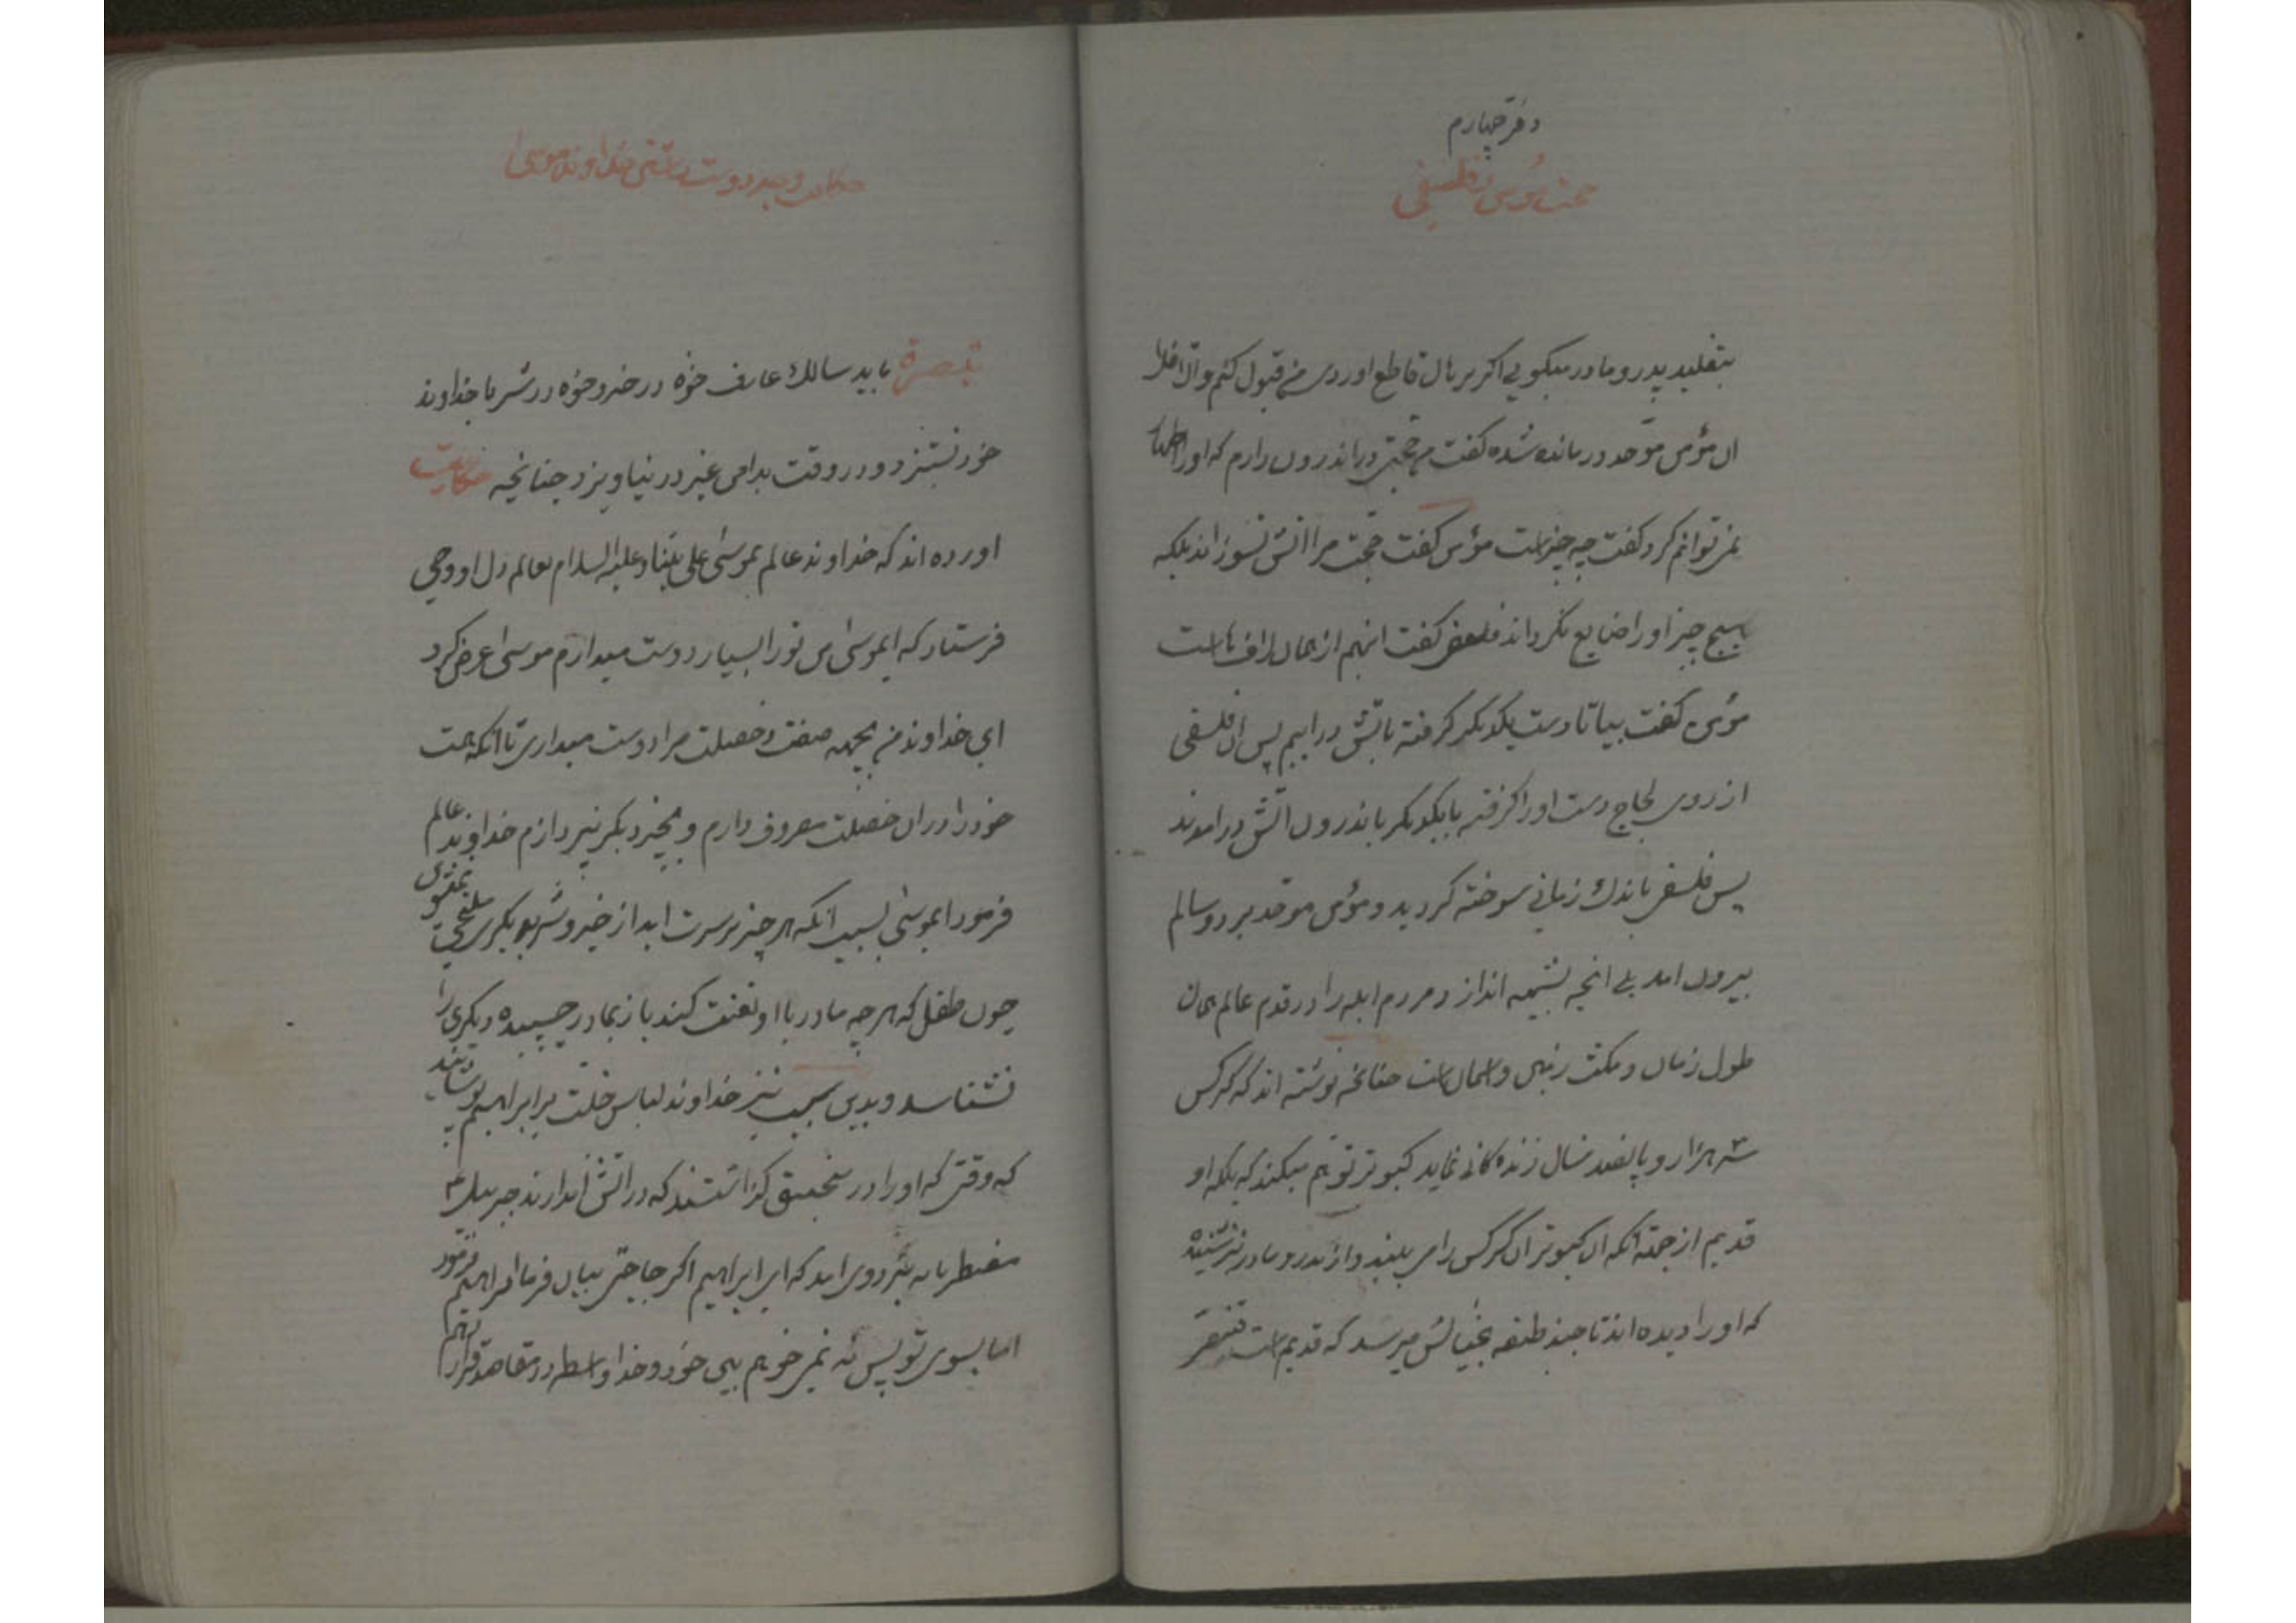 دفتر چهارم
بحث مؤمن با فلسفی
بتقلید پدر و مادر میکویی اکر برهان قاطع اوردی من قبول کنم والا فلا
ان مؤمن موحد درمانده شده کفت من حجتی در اندرون دارم که اورا اظهار
نمی توانم کرد کفت چه چیز است مؤمن کفت حجت مرا اتش نسوزاند بلکه
هیچ چیز اورا ضایع نکرداند فلسفی کفت اینهم از همان لافهاست
مؤمن کفت بیا تا دست یکدیکر کرفته باتش در اییم پس ان فلسفی
از روی لجاج دست اورا کرفته با یکدیکر باندرون اتش درامدند
پس فلسفی باندک زمانی سوخته کردید و مؤمن موحد برد و سالم
بیرون امد بلی انچه بشبهه اندازد مردم ابله را در قدم عالم همان
طول زمان و مکث زمین و اسمان است چنانچه نوشته اند که کرکس
سه هزار و پانصد سال زنده کانی نماید کبوتر توهم میکند که بلکه او
قدیم از جهة انکه ان کبوتر ان کرکس را می بیند و از پدر و مادر نیز شنیده
که اورا دیده اند تا چند طبقه بخیالش میرسد که قدیم است
حکایت وجه دوست داشتن خداوند موسی را
تبصرة باید سالک عارف خوه در خیر و خوه در شر با خداوند
خود نستیزد و در وقت بدامن غیر در نیاویزد چنانچه حکایت
اورده اند که خداوند عالم بموسی علی نبینا و علیه السلام بعالم دل او وحی
فرستاد که ایموسی من تورا بسیار دوست میدارم موسی عرض کرد
ای خداوند من بچه صفت و خصلت مرا دوست میداری تا انکه همت
خود را در ان خصلت معروف دارم و بچیز دیکر نپردازم خداوند عالم
فرمود ایموسی بسبب انکه هر چیز برسرت اید از خیر و شر بدیکری ملتجی نمیشوی
چون طفل که هر چه مادر با او تعنت کند باز بمادر چسبیده دیکری را
نشناسد و بدین سبب نیز خداوند لباس خلت بر ابراهیم پوشانید
که وقتی که اورا در منجنیق کذاشتند که در اتش اندازند جبرییل ع
مضطربانه نزد وی امد که ای ابراهیم اکر حاجتی بیان فرما ابراهیم فرمود
اما بسوی تو پس نه نمی خوهم بین خود و خدا واسطه در مقاصد قرار دهم